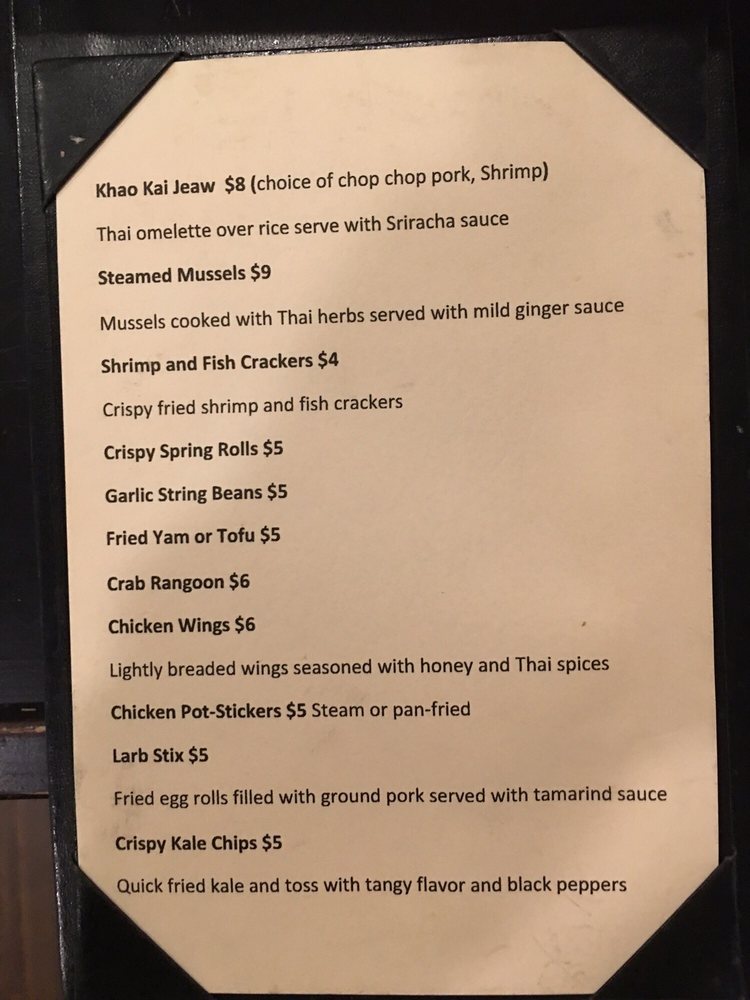 Khao Kai Jeaw $8 (choice of chop chop pork, Shrimp)
Thai omelette over rice serve with Sriracha sauce
Steamed Mussels $9
Mussels cooked with Thai herbs served with mild ginger sauce
Shrimp and Fish Crackers $4
Crispy fried shrimp and fish crackers
Crispy Spring Rolls $5
Garlic String Beans $5
Fried Yam or Tofu $5
Crab Rangoon $6
Chicken Wings $6
Lightly breaded wings seasoned with honey and Thai spices
Chicken Pot-Stickers $5 Steam or pan-fried
Larb Stix $5
Fried egg rolls filled with ground pork served with tamarind sauce
Crispy Kale Chips $5
Quick fried kale and toss with tangy flavor and black peppers